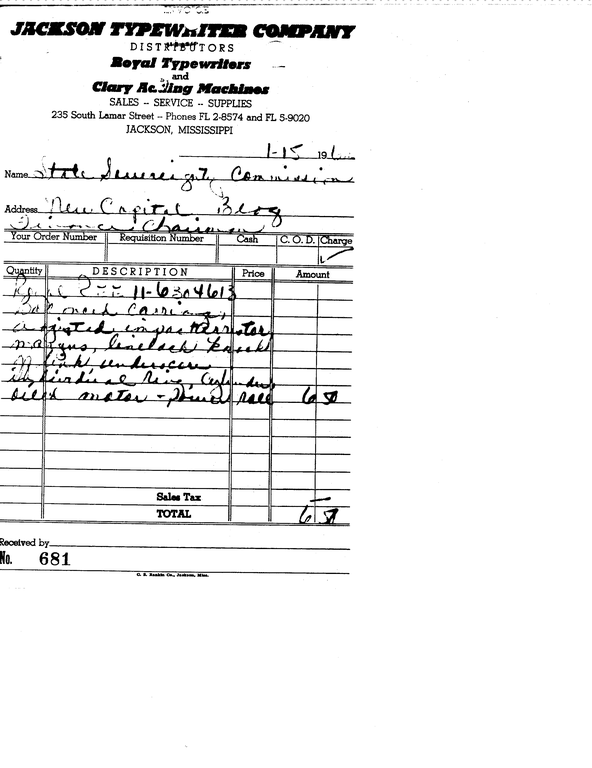 INVOICE
JACKSON TYPEWRITER COMPANY
DISTRIBUTORS
Royal Typewriters
and
Clary Adding Machines
SALES -- SERVICE -- SUPPLIES
235 South Lamar Street -- Phones FL 2-8574 and FL 5-9020
JACKSON, MISSISSIPPI
1-15 196
Name State Sovereignty Commission
Address New Capitol Bldg
Finance Chairman
Your Order Number Requisition Number Cash C. O. D. Charge
Quantity DESCRIPTION Price Amount
Royal REE 11-6304613
carriage,
adjusted impact
margins, linelock
underscore
individual
oiled motor - power roll 6 50
Sales Tax —
TOTAL 6 50
Received by
No. 681
C. S. Rankin Co., Jackson, Miss.